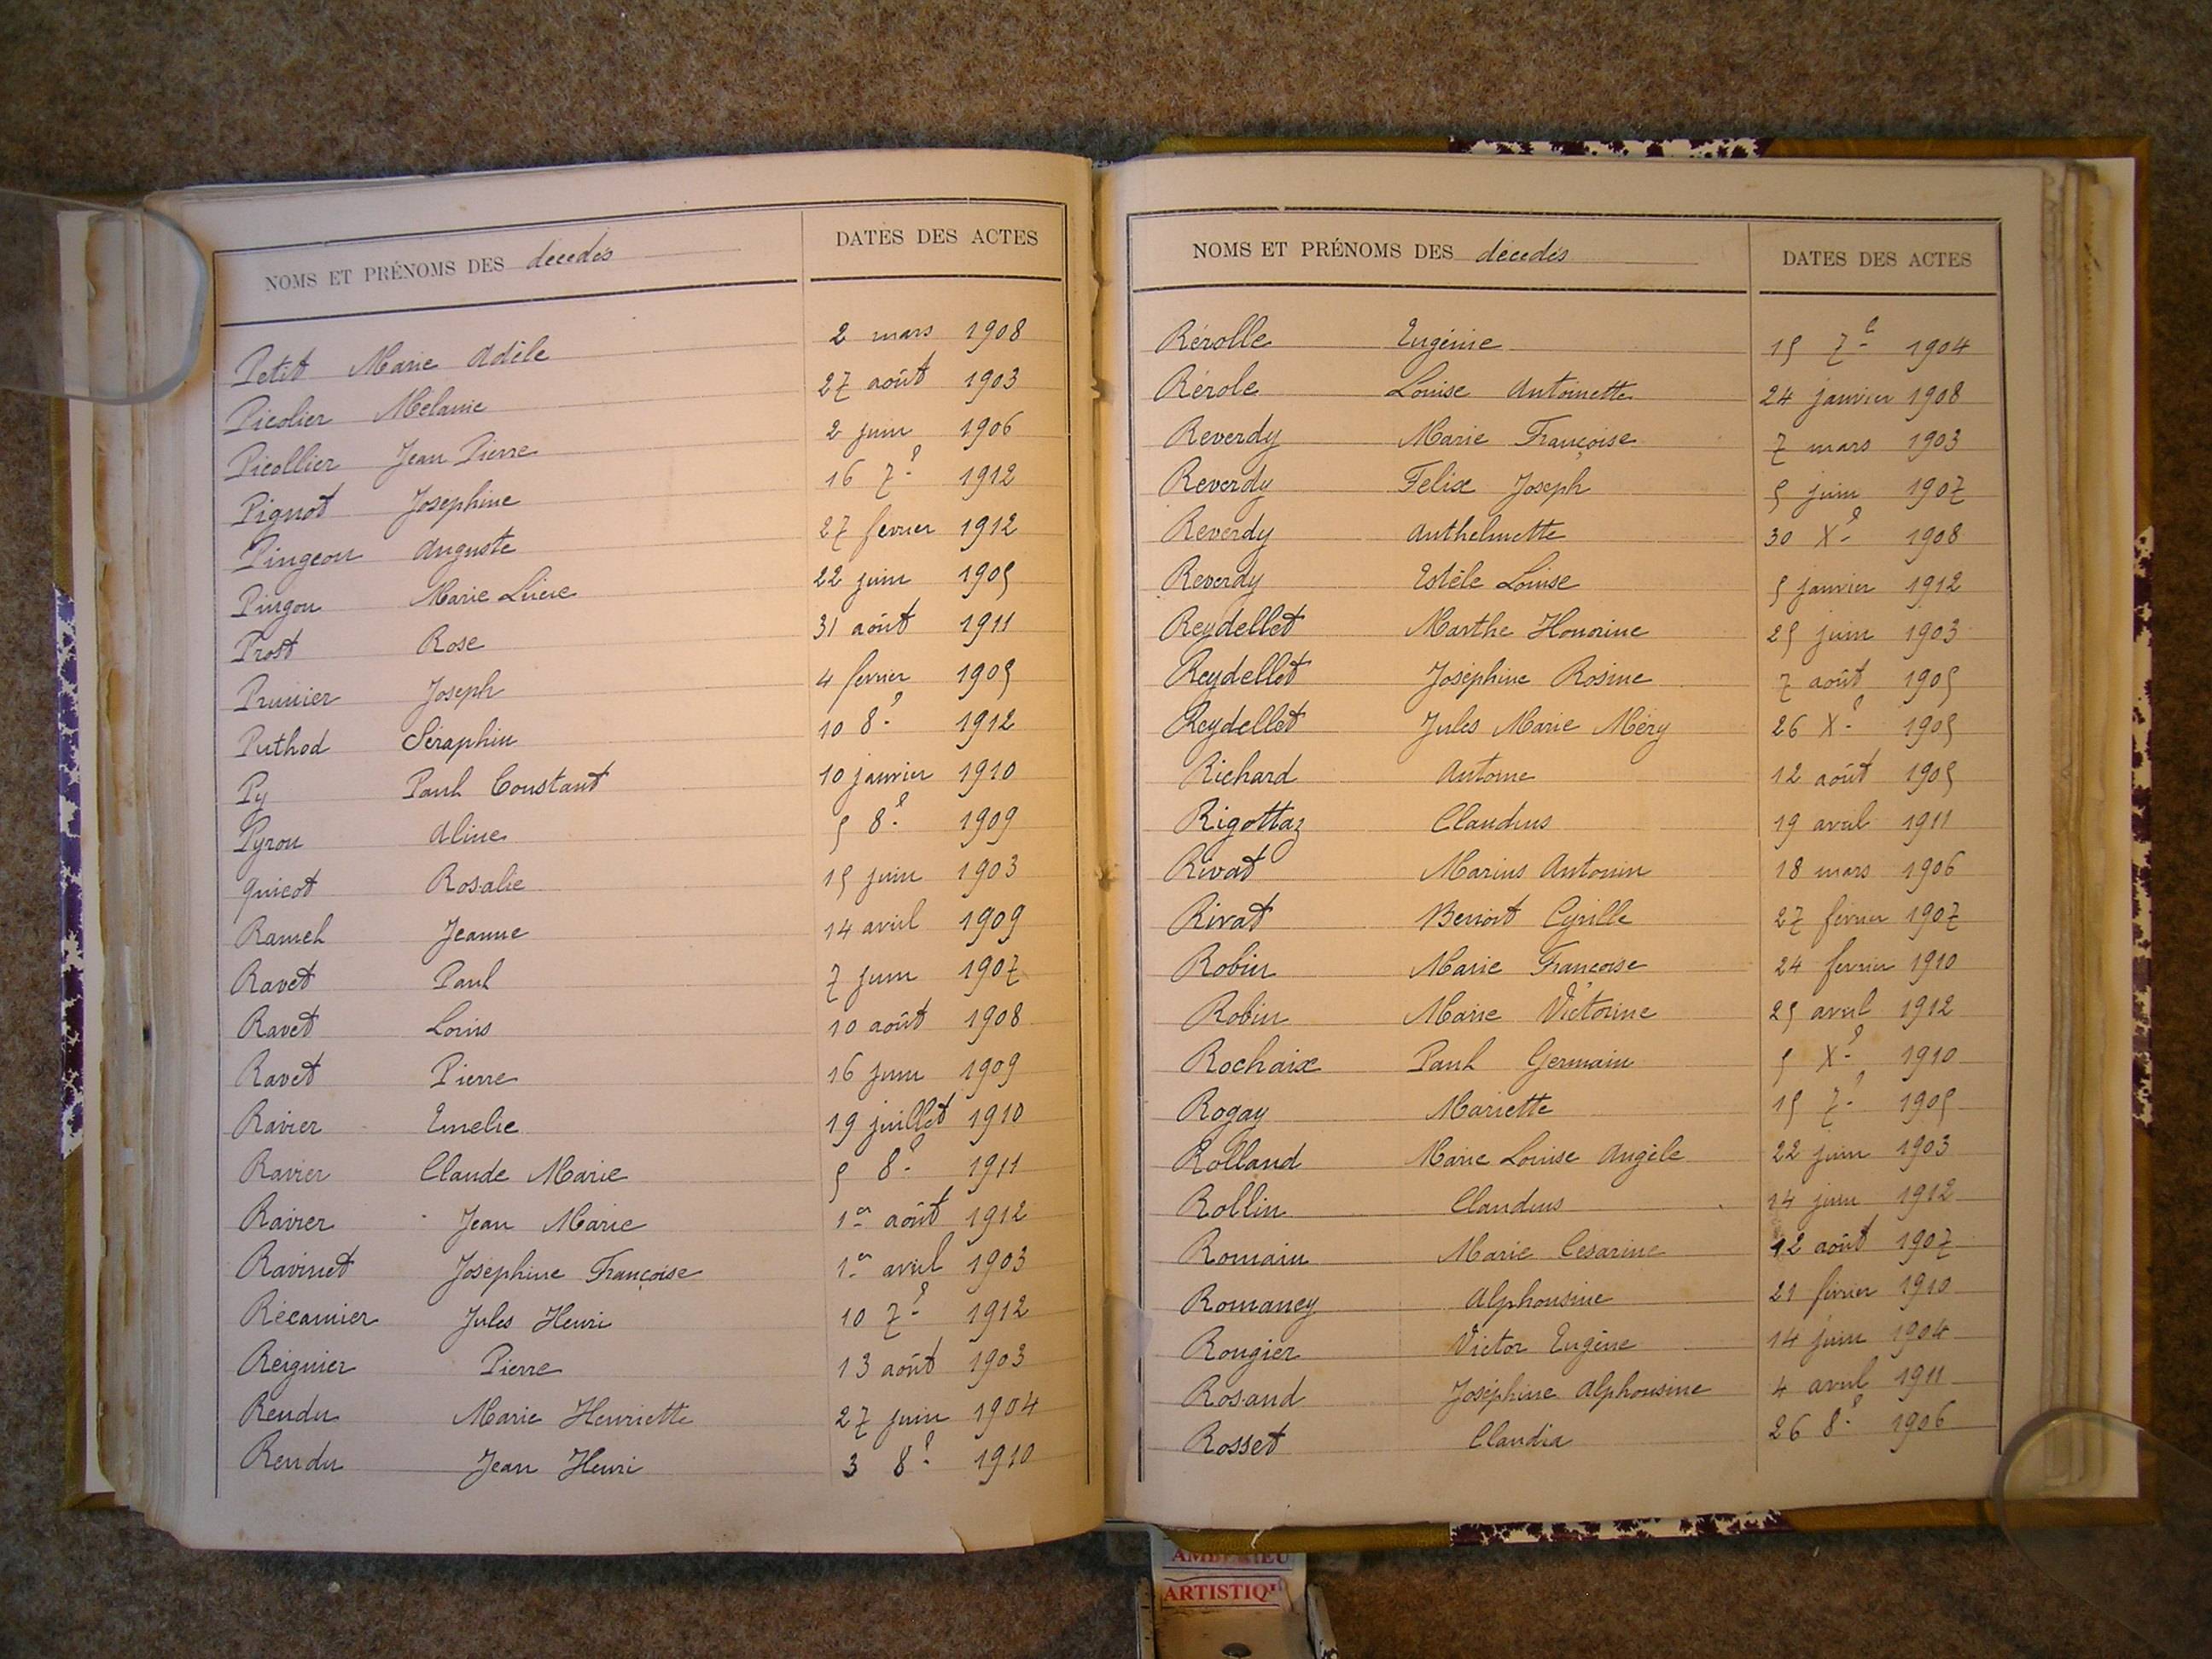 NOMS ET PRÉNOMS DES décédés DATES DES ACTES
Petit Marie Adèle 2 mars 1908
Picolier Mélanie 27 août 1903
Picollier Jean Pierre 2 juin 1906
Pignot Josephine 16 7e 1912
Pingeon Auguste 27 fevrier 1912
Pingon Marie Lucie 22 juin 1905
Prost Rose 31 août 1911
Prunier Joseph 4 fevrier 1905
Puthod Séraphin 10 8e 1912
Py Paul Constant 10 janvier 1910
Pyron Aline 5 8e 1909
Quicot Rosalie 15 juin 1903
Ramel Jeanne 14 avril 1909
Ravet Paul 7 juin 1907
Ravet Louis 10 août 1908
Ravet Pierre 16 juin 1909
Ravier Emelie 19 juillet 1910
Ravier Claude Marie 5 8e 1911
Ravier Jean Marie 1er août 1912
Ravinet Josephine Françoise 1er avril 1903
Récamier Jules Henri 10 7e 1912
Reignier Pierre 13 août 1903
Rendu Marie Henriette 27 juin 1904
Rendu Jean Henri 3 8e 1910
NOMS ET PRÉNOMS DES décédés DATES DES ACTES
Rérolle Eugénie 15 7e 1904
Rérole Louise Antoinette 24 janvier 1908
Reverdy Marie Françoise 7 mars 1903
Reverdy Felix Joseph 5 juin 1907
Reverdy Anthelmette 30 Xe 1908
Reverdy Estèle Louise 5 janvier 1912
Reydellet Marthe Honorine 25 juin 1903
Reydellet Joséphine Rosine 7 août 1905
Reydellet Jules Marie Méry 26 Xe 1905
Richard Antoine 12 août 1905
Rigottaz Claudius 19 avril 1911
Rivat Marius Antonin 18 mars 1906
Rivat Benoit Cyrille 27 février 1907
Robin Marie Françoise 24 fevrier 1910
Robin Marie Victorine 25 avril 1912
Rochaix Paul Germain 5 Xe 1910
Rogay Mariette 15 7e 1905
Rolland Marie Louise Angèle 22 juin 1903
Rollin Claudius 14 juin 1912
Romain Marie Cesarine 12 août 1907
Romaney Alphonsine 21 février 1910
Rougier Victor Eugène 14 juin 1904
Rosand Joséphine Alphonsine 4 avril 1911
Rosset Claudia 26 8e 1906
AMBERIEU
ARTISTIQ